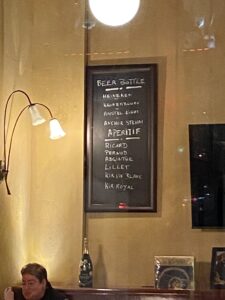 BEER BOTTLE
HEINEKEN
KRONENBOURG
AMSTEL LIGHT
ANCHOR STEAM
APERITIF
RICARD
PERNOD
ABSINTHE
LILLET
KIR VIN BLANC
KIR ROYAL